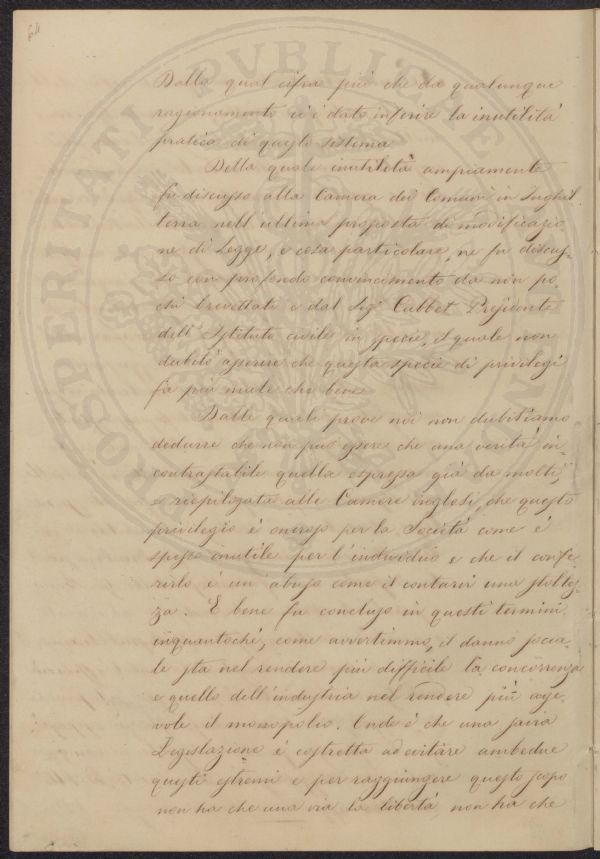 64
PROSPERITATI PVBLICAE
Dalla qual cifra più che da qualunque
ragionamento ci è dato inferire la inutilità
pratica di questo sistema
Della quale inutilità ampiamente
fu discusso alla Camera dei Comuni in Inghil
terra nell'ultima proposta di modificazio-
ne di Legge, e cosa particolare, ne fu discus-
so con profondo convincimento da non po-
chi brevettati e dal Sigr Cubbet Presidente
dell'Istituto civile in specie, il quale non
dubitò asserire che questa specie di privilegi
fa più male che bene
Dalle quali prove noi non dubitiamo
dedurre che non può essere che una verità in-
contrastabile quella espressa già da molti,
e riepilogata alle Camere inglesi, che questo
privilegio è oneroso per la Società come è
spesso inutile per l'individuo e che il confe-
rirlo è un'abuso come il contarvi una stoltez-
za. E bene fu concluso in questi termini
inquantochè, come avvertimmo, il danno socia-
le sta nel rendere più difficile la concorrenza
e quello dell'industria nel rendere più age-
vole il monopolio. Onde è che una savia
Legislazione è costretta ad evitare ambedue
questi estremi e per raggiungere questo scopo
non ha che una via la libertà, non ha che